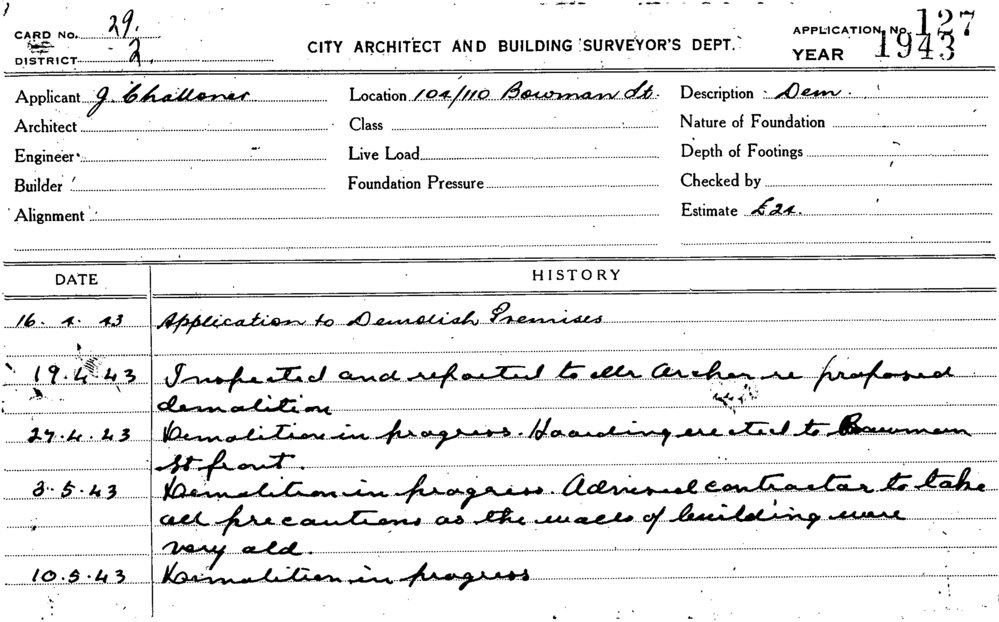 CARD No. 29.
DISTRICT 2.
CITY ARCHITECT AND BUILDING SURVEYOR'S DEPT.
APPLICATION No. 127
YEAR 1943
Applicant J. Challoner Location 104/110 Bowman St. Description Dem.
Architect Class Nature of Foundation
Engineer Live Load Depth of Footings
Builder Foundation Pressure Checked by
Alignment Estimate £24.
DATE HISTORY
16. 4. 43 Application to Demolish Premises
19.4.43 Inspected and reported to Mr Archer re proposed
demolition
27.4.43 Demolition in progress. Hoarding erected to Bowman
St front.
3.5.43 Demolition in progress. Advised contractor to take
all precautions as the walls of building were
very old.
10.5.43 Demolition in progress